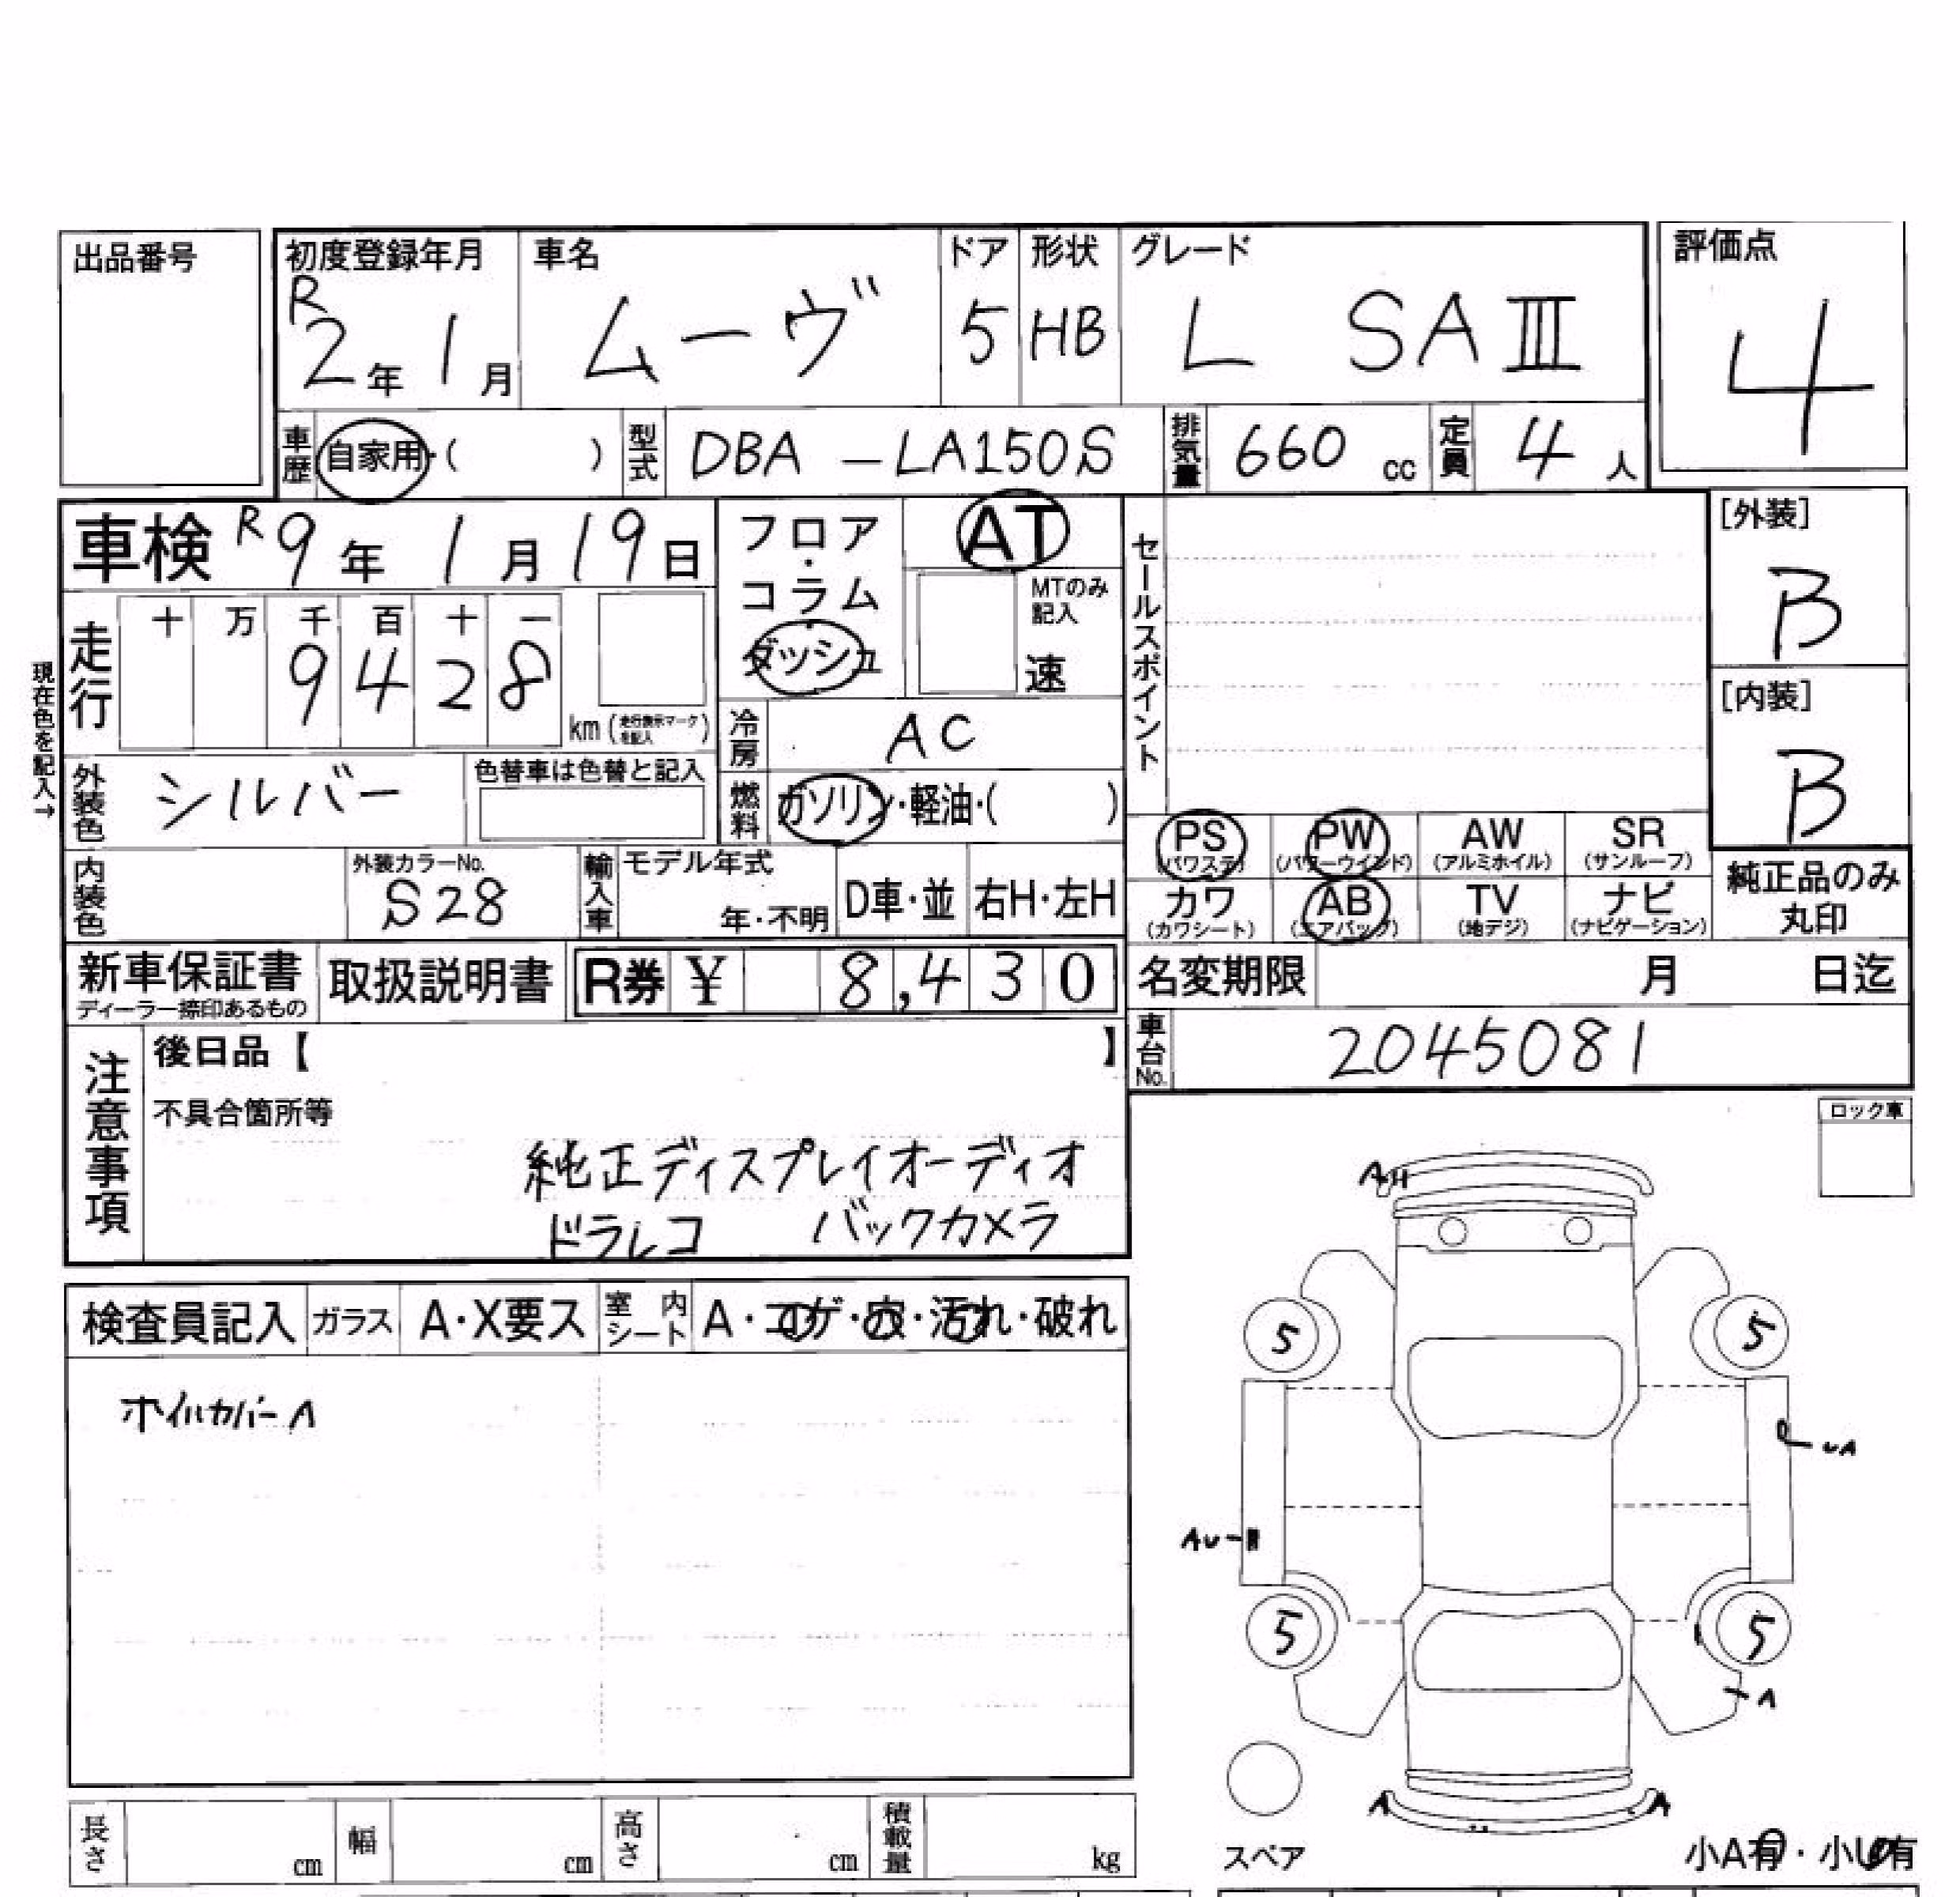 出品番号
初度登録年月 車名 ドア 形状 グレード 評価点
R2年1月 ムーヴ 5 HB L SAⅢ 4
車歴 自家用・( ) 型式 DBA-LA150S 排気量 660 cc 定員 4人
車検 R9年1月19日
フロア・コラム・ダッシュ
AT
MTのみ記入
速
セールスポイント
[外装]
B
[内装]
B
現在色を記入→
走行 十 万 千 百 十 一
9 4 2 8
km (走行表示マークを記入)
冷房 AC
外装色 シルバー 色替車は色替と記入
燃料 ガソリン・軽油・( )
PS (パワステ) PW (パワーウインド) AW (アルミホイル) SR (サンルーフ)
カワ (カワシート) AB (エアバッグ) TV (地デジ) ナビ (ナビゲーション)
純正品のみ
丸印
内装色 外装カラーNo. S28 輸入車 モデル年式 年・不明 D車・並 右H・左H
新車保証書 ディーラー捺印あるもの 取扱説明書 R券 ¥ 8,430
名変期限 月 日迄
車台No. 2045081
注意事項
後日品【 】
不具合箇所等
純正ディスプレイオーディオ
ドラレコ バックカメラ
ロック車
検査員記入 ガラス A・X要ス 室内シート A・コゲ・穴・汚れ・破れ
ホイルカバーA
5 5
UA
AU
5 5
A
A A
スペア
小A有・小U有
長さ cm 幅 cm 高さ cm 積載量 kg